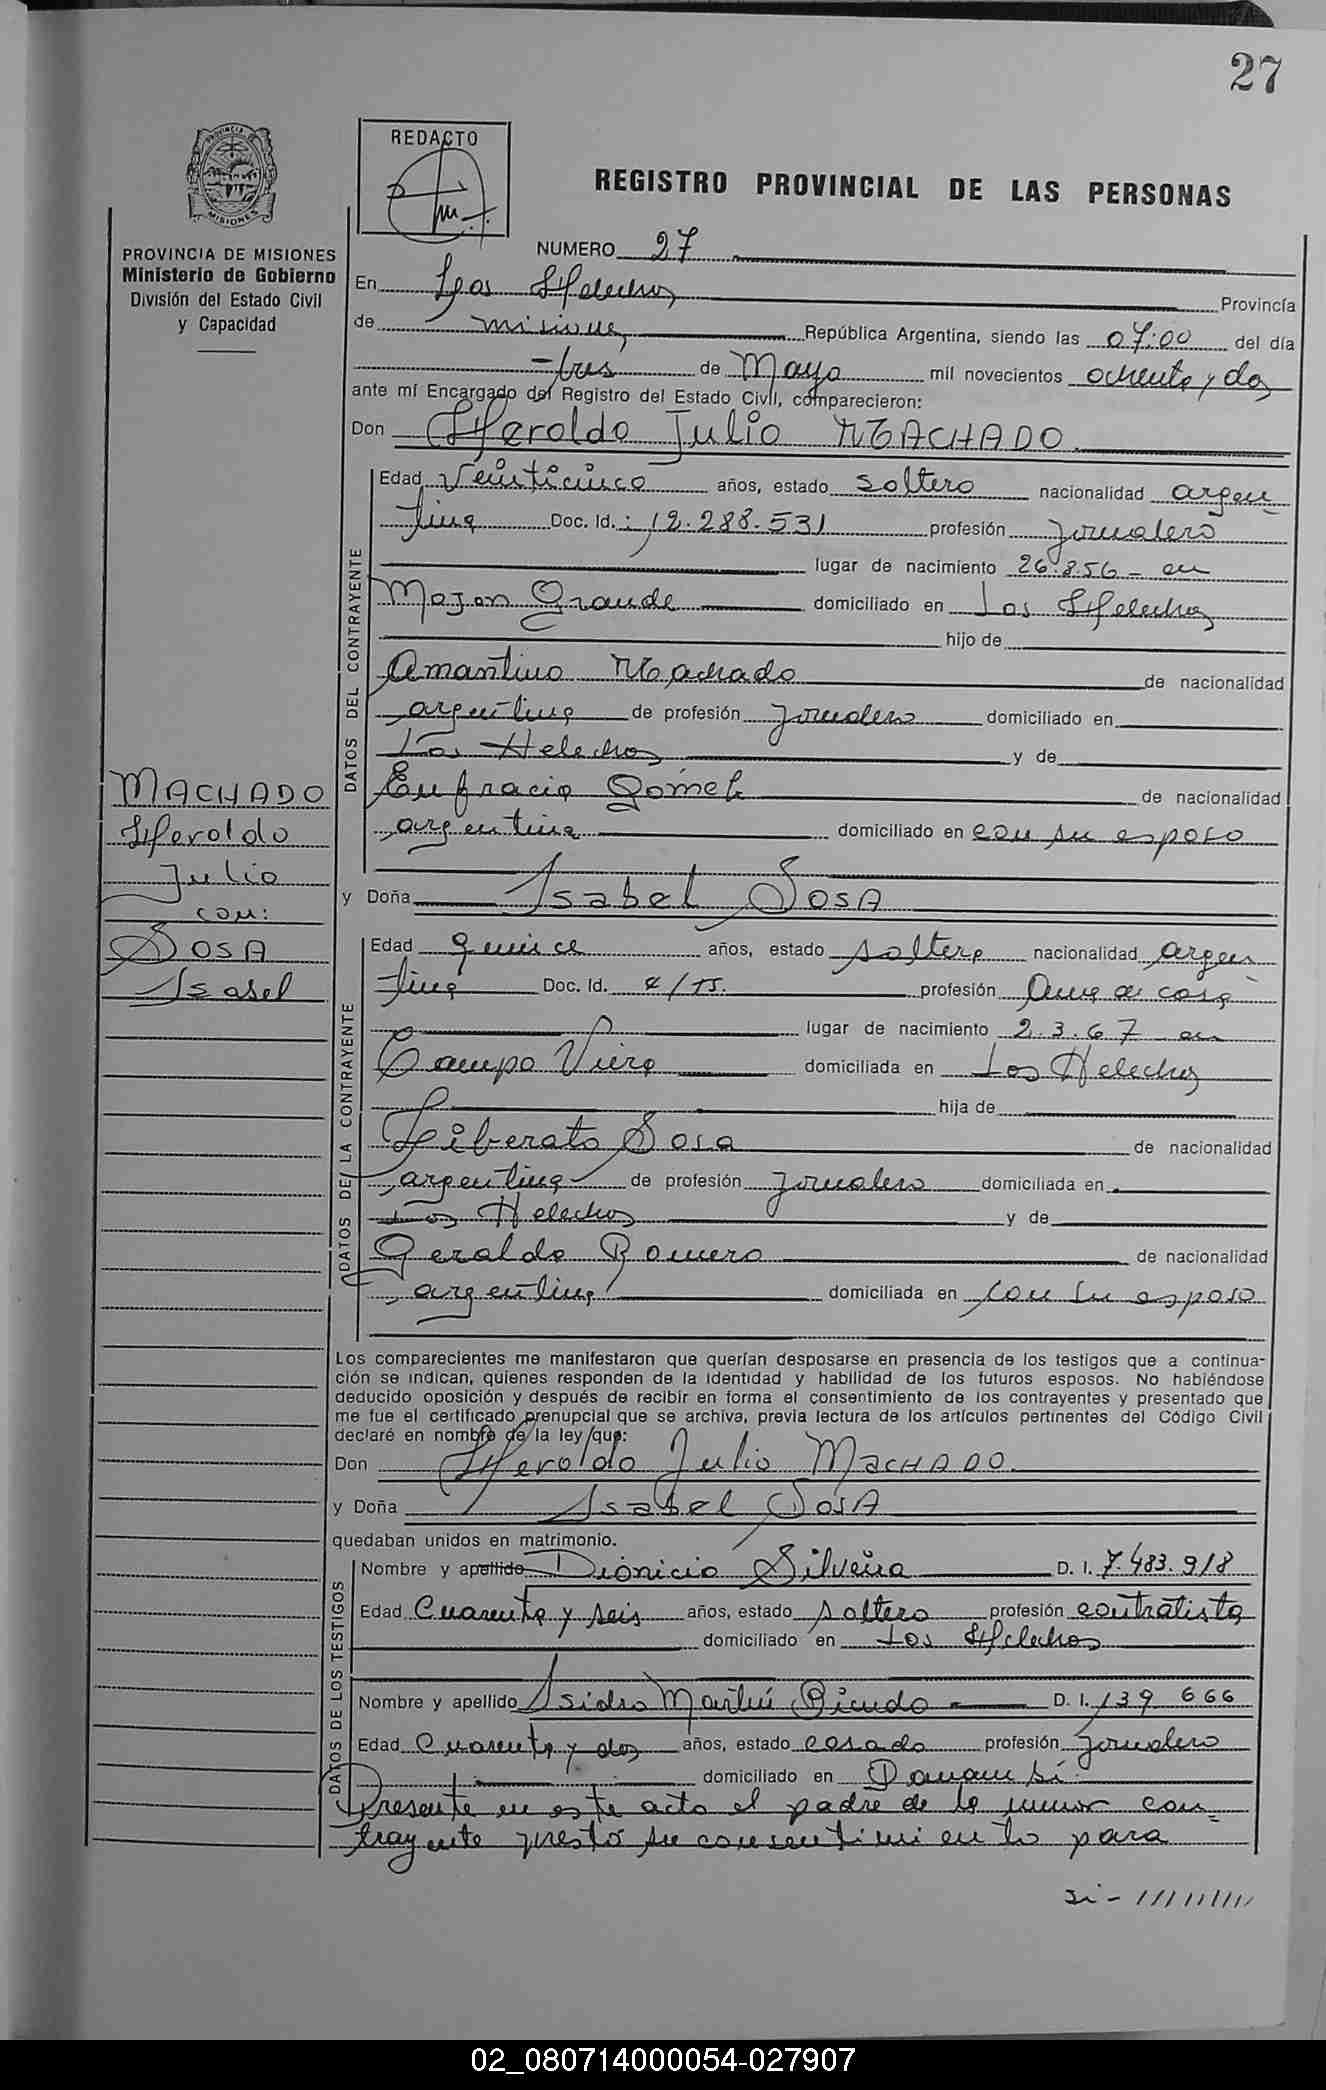 27
PROVINCIA DE
MISIONES
REDACTO
REGISTRO PROVINCIAL DE LAS PERSONAS
PROVINCIA DE MISIONES
Ministerio de Gobierno
División del Estado Civil
y Capacidad
NUMERO 27
En Los Helechos Provincia
de misiones República Argentina, siendo las 07:00 del día
-tres de Mayo mil novecientos ochenta y dos
ante mí Encargado del Registro del Estado Civil, comparecieron:
Don Heroldo Julio MACHADO
DATOS DEL CONTRAYENTE
Edad Veinticinco años, estado soltero nacionalidad argen
tina Doc. Id. : 12.288.531 profesión jornalero
lugar de nacimiento 26.8.56 - en
Mojon Grande domiciliado en Los Helechos
hijo de
Amantino Machado de nacionalidad
argentina de profesión jornalero domiciliado en
Los Helechos y de
Eufracia Gómez de nacionalidad
argentina domiciliado en con su esposo
MACHADO
Heroldo
Julio
con:
SOSA
Isabel
y Doña Isabel SOSA
DATOS DE LA CONTRAYENTE
Edad quince años, estado soltera nacionalidad argen
tina Doc. Id. profesión Ama de casa
lugar de nacimiento 2.3.67 en
Campo Viera domiciliada en Los Helechos
hija de
Liberato Sosa de nacionalidad
argentina de profesión jornalero domiciliada en
Los Helechos y de
Geralda Romero de nacionalidad
argentina domiciliada en con su esposo
Los comparecientes me manifestaron que querían desposarse en presencia de los testigos que a continua-
ción se indican, quienes responden de la identidad y habilidad de los futuros esposos. No habiéndose
deducido oposición y después de recibir en forma el consentimiento de los contrayentes y presentado que
me fue el certificado prenupcial que se archiva, previa lectura de los artículos pertinentes del Código Civil
declaré en nombre de la ley que:
Don Heroldo Julio MACHADO
y Doña Isabel SOSA
quedaban unidos en matrimonio.
DATOS DE LOS TESTIGOS
Nombre y apellido Dionicio Silveira D. I. 7.483.918
Edad Cuarenta y seis años, estado soltero profesión contratista
domiciliado en Los Helechos
Nombre y apellido Isidro Martín D. I. 139 666
Edad Cuarenta y dos años, estado casado profesión jornalero
domiciliado en Panambí
Presente en este acto el padre de la menor con-
trayente prestó su consentimiento para
si- //////////
02_080714000054-027907